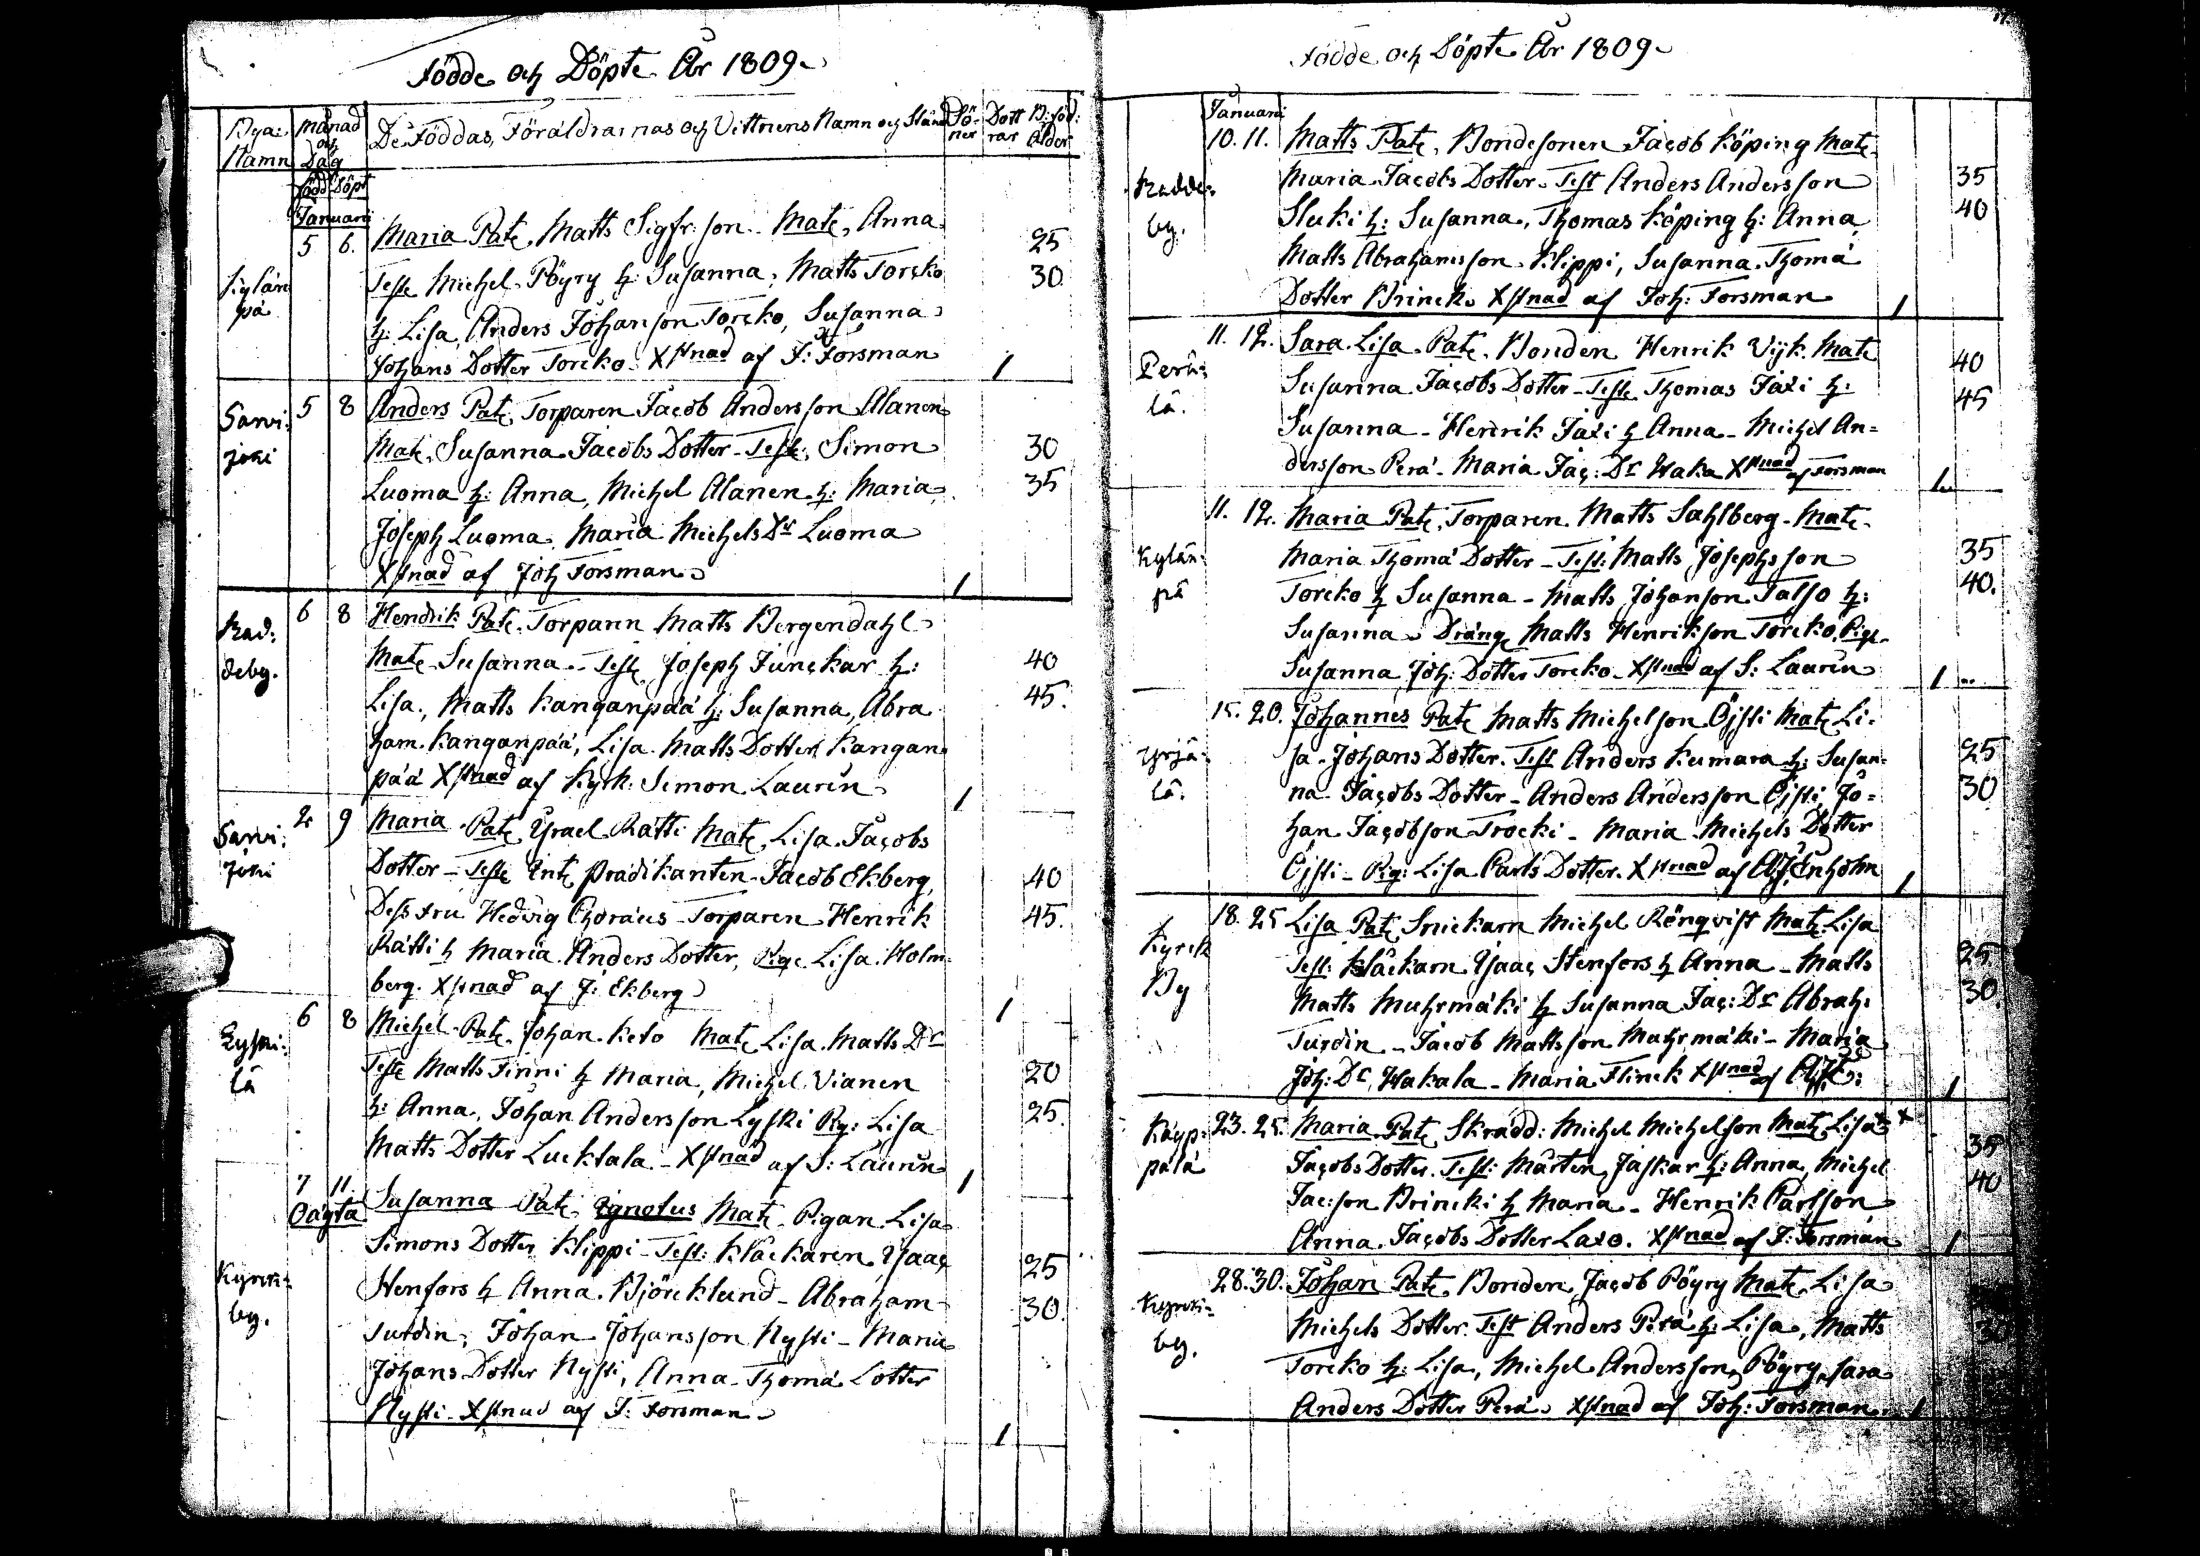 Födde och Döpte År 1809.
Bya: Namn
Månad och Dag
De Föddas, Föräldrarnas och Vittnens Namn och Stånd
Sö-ner
Dott rar
B: föd: Ålder
Född Döpt
Januari
Kylän pä
5 6. Maria Pat. Matts Sigfr: son. Mat. Anna 25
Teste Michel Pöyry h: Susanna, Matts Torcko 30
h: Lisa, Anders Johanson Torcko, Susanna
Johans Dotter Torcko. Xstnad af J: Forsman 1
Sarvi: joki
5 8 Anders Pat. Torparen Jacob Andersson Alanen
Mat. Susanna Jacobs Dotter - Test. Simon 30
Luoma h: Anna, Michel Alanen h: Maria 35
Joseph Luoma. Maria Michels Dr Luoma
Xstnad af Joh Forsman 1
Rad: deby.
6 8 Hendrik Pat. Torparin Matts Bergendahl
Mat. Susanna - Test. Joseph Junckar h: 40
Lisa, Matts Kanganpää h: Susanna, Abra 45.
ham Kanganpää, Lisa Matts Dotter Kangan
pää Xstnad af Kyrk: Simon Laurin 1
Sarvi: joki
2 9 Maria Pat. Ysrael Rätti Mat. Lisa Jacobs
Dotter - Teste Ent. Predikanten Jacob Ekberg, 40
Dess Fru Hedvig Choræus Torparen Henrik 45.
Rätti h Maria Anders Dotter, Pige Lisa Holm-
berg. Xstnad af J: Ekberg 1
Lyski: lä
6 8 Michel Pat. Johan Keto Mat. Lisa Matts Dr
Teste Matts Finni h Maria, Michel Vianen 20
h: Anna, Johan Andersson Lyski Pig: Lisa 25.
Matts Dotter Lucktala - Xstnad af S: Laurin 1
7 11. Susanna Pat. Ignotus Mat. Pigan Lisa
Oägta
Simons Dotter Klippi - Test: Klåckaren Ysaac
Kyrck: by.
Stenfors h Anna Björcklund - Abraham 25
Turdin, Johan Johansson Nysti - Maria 30.
Johans Dotter Nysti, Anna Thomä Dotter
Nysti - Xstnad af J: Forsman 1
Födde och Döpte År 1809.
Januari
Radde: by.
10. 11. Matts Pat. Bondesonen Jacob Köping Mat.
Maria Jacobs Dotter - Test Anders Andersson 35
Sluki h: Susanna, Thomas Köping h: Anna 40
Matts Abrahamsson Klippi, Susanna Thomä
Dotter Brinck. Xstnad af Joh: Forsman 1
Perä: lä.
11. 12. Sara Lisa Pat. Bonden Henrik Vijk. Mat. 40
Susanna Jacobs Dotter - Teste Thomas Jaxi h: 45
Susanna - Henrik Jaxi h Anna - Michel An-
dersson Perä - Maria Jac: Dr Waka Xstnad af Forsman 1
Kylän: pä
11. 12. Maria Pat. Torparen Matts Sahlberg - Mat.
Maria Thomä Dotter - Test: Matts Josephsson 35
Torcko h Susanna - Matts Johanson Talso h: 40.
Susanna - Dräng Matts Henrikson Torcko, Pig.
Susanna Joh: Dotter Torcko - Xstnad af S: Laurin 1
Yrjä: lä.
15. 20. Johannes Pat. Matts Michelson Öjsti Mat. Li-
sa Johans Dotter. Test Anders Kumara h: Susan- 25
na Jacobs Dotter - Anders Andersson Öjsti, Jo- 30
han Jacobson Trocki - Maria Michels Dotter
Öjsti - Pig: Lisa Carls Dotter. Xstnad af Enholm 1
Kyrck By
18. 25 Lisa Pat. Snickarn Michel Rönqvist Mat. Lisa
Test: Klåckarn Ysaac Stenfors h Anna - Matts 25
Matts Muhrmäki h Susanna Jac: Dr Abrah: 30.
Turdin - Jacob Mattsson Muhrmäki - Maria
Joh: Dr, Wakala - Maria Flinck Xstnad af 1
Käyp: pälä
23. 25. Maria Pat. Skrädd: Michel Michelson Mat. Lisa x
Jacobs Dotter. Test: Mårten Jaskar h: Anna, Michel 35
Jac:son Brincki h Maria - Henrik Carlson, 40
Anna Jacobs Dotter Laxo. Xstnad af J: Forsman 1
Kyrck: by.
28. 30. Johan Pat. Bonden Jacob Pöyry Mat. Lisa
Michels Dotter. Test Anders Perä h: Lisa, Matts 30
Torcko h: Lisa, Michel Andersson Pöyry, Sara
Anders Dotter Perä. Xstnad af Joh: Forsman 1